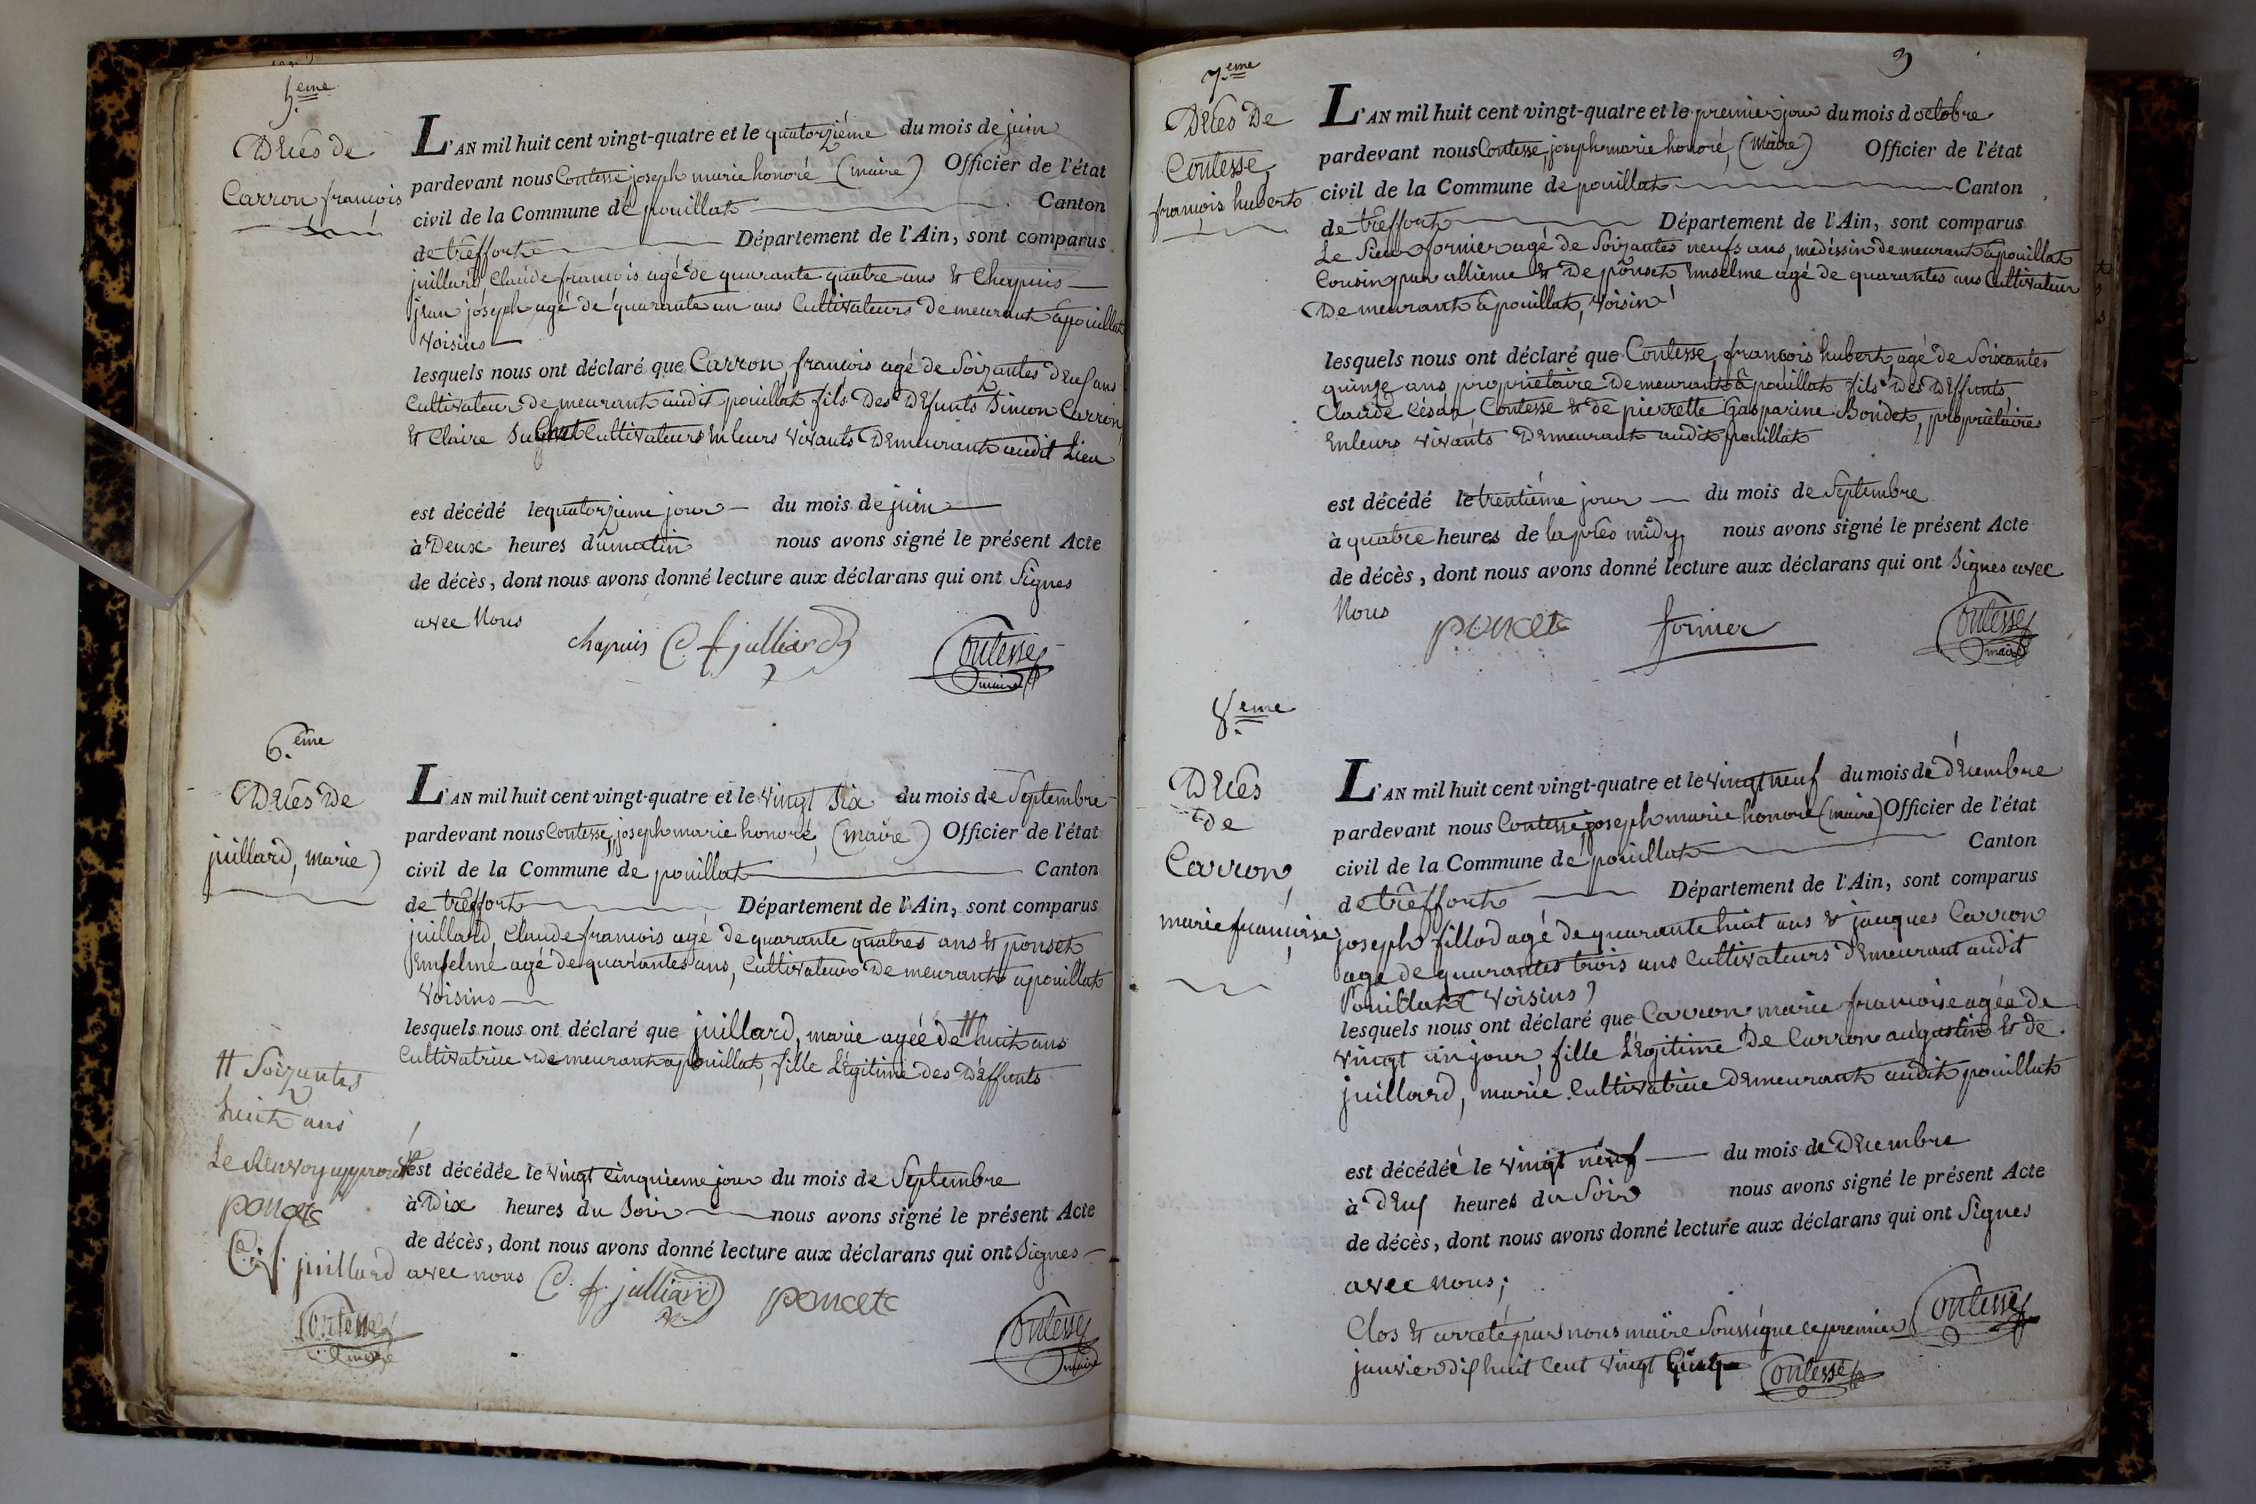 5.eme
Décès de
Carron francois
L'AN mil huit cent vingt-quatre et le quatorziéme du mois de juin
pardevant nous Contesse, joseph marie honoré (maire) Officier de l'état
civil de la Commune de pouillat Canton
de trêffort Département de l'Ain, sont comparus
juillard, Claude francois agé de quarante quatre ans et Chapuis
jean jóseph agé de quarante un ans Cultivateurs demeurant à pouillat
voisins
lesquels nous ont déclaré que Carron, francois agé de Soixantes deuf ans
Cultivateur demeurant audit pouillat fils Des Défunts Simon Carron,
et Claire Cultivateurs En leurs vivants Demeurant audit Lieu
est décédé le quatorzieme jour du mois de juin
à Deux heures du matin nous avons signé le présent Acte
de décès, dont nous avons donné lecture aux déclarans qui ont Signes
avec Nous
chapuis C. f julliard Contesse
maire
6.eme
Décès De
juillard, marie
L'AN mil huit cent vingt-quatre et le vingt Six du mois de Septembre
pardevant nous Contesse, joseph marie honoré, (maire) Officier de l'état
civil de la Commune de pouillat Canton
de trêffort Département de l'Ain, sont comparus
juillard, Claude francois agé de quarante quatres ans et ponset
Enselme agé de quarantes ans, Cultivateur Demeurant a pouillat
voisins
lesquels nous ont déclaré que juillard, marie agéé de # huit ans
Cultivatrice demeurant a pouillat, fille Légitime des Déffunts
# Soixantes
huit ans
Le Renvoy approuvé
poncet
C. f. juillard
Contesse
maire
est décédée le vingt Cinquieme jour du mois de Septembre
à Dix heures du Soir nous avons signé le présent Acte
de décès, dont nous avons donné lecture aux déclarans qui ont Signes
avec nous C. f. julliard poncet Contesse
maire
9
7.eme
Décès De
Contesse,
françois hubert
L'AN mil huit cent vingt-quatre et le premier jour du mois d octobre
pardevant nous Contesse, joseph marie honoré, (Maire) Officier de l'état
civil de la Commune de pouillat Canton
de trêffort Département de l'Ain, sont comparus
Le Sieur fornier agé de Soixantes neufs ans, médéssin demeurant à pouillat
Cousin par allience et De ponset Enselme agé de quarantes ans Cultivateur
Demeurant à pouillat, voisin
lesquels nous ont déclaré que Contesse, françois hubert, agé de Soixantes
quinze ans, propriétaire Demeurant à pouillat fils Des Deffunts,
Claude César Contesse et de pierrette Gasparine Bondet, propriétaires
En leurs vivants Demeurant audit pouillat
est décédé le trentiéme jour du mois de Septembre
à quatre heures de la près midy, nous avons signé le présent Acte
de décès, dont nous avons donné lecture aux déclarans qui ont Signes avec
Nous poncet fornier Contesse
maire
8.eme
Décés
de
Carron,
marie françoise
L'AN mil huit cent vingt-quatre et le vingt neuf du mois de décembre
pardevant nous Contesse, joseph marie honoré (maire) Officier de l'état
civil de la Commune de pouillat Canton
de trêffort Département de l'Ain, sont comparus
joseph fillod agé de quarante huit ans et jacques Carron
agé de quarantes trois ans Cultivateurs Demeurant audit
Pouillat voisins,
lesquels nous ont déclaré que Carron marie francoise agée de
vingt un jour, fille Légitime De Carron augustin et de
juillard, marie. Cultivatrice Demeurant audit pouillat
est décédéé le vingt neuf du mois de Décembre
à deuf heures du Soir nous avons signé le présent Acte
de décès, dont nous avons donné lecture aux déclarans qui ont Signes
avec nous; Contesse
Clos et arreté par nous maire Soussigné ce premier
janvier dif huit Cent vingt Cinq Contesse